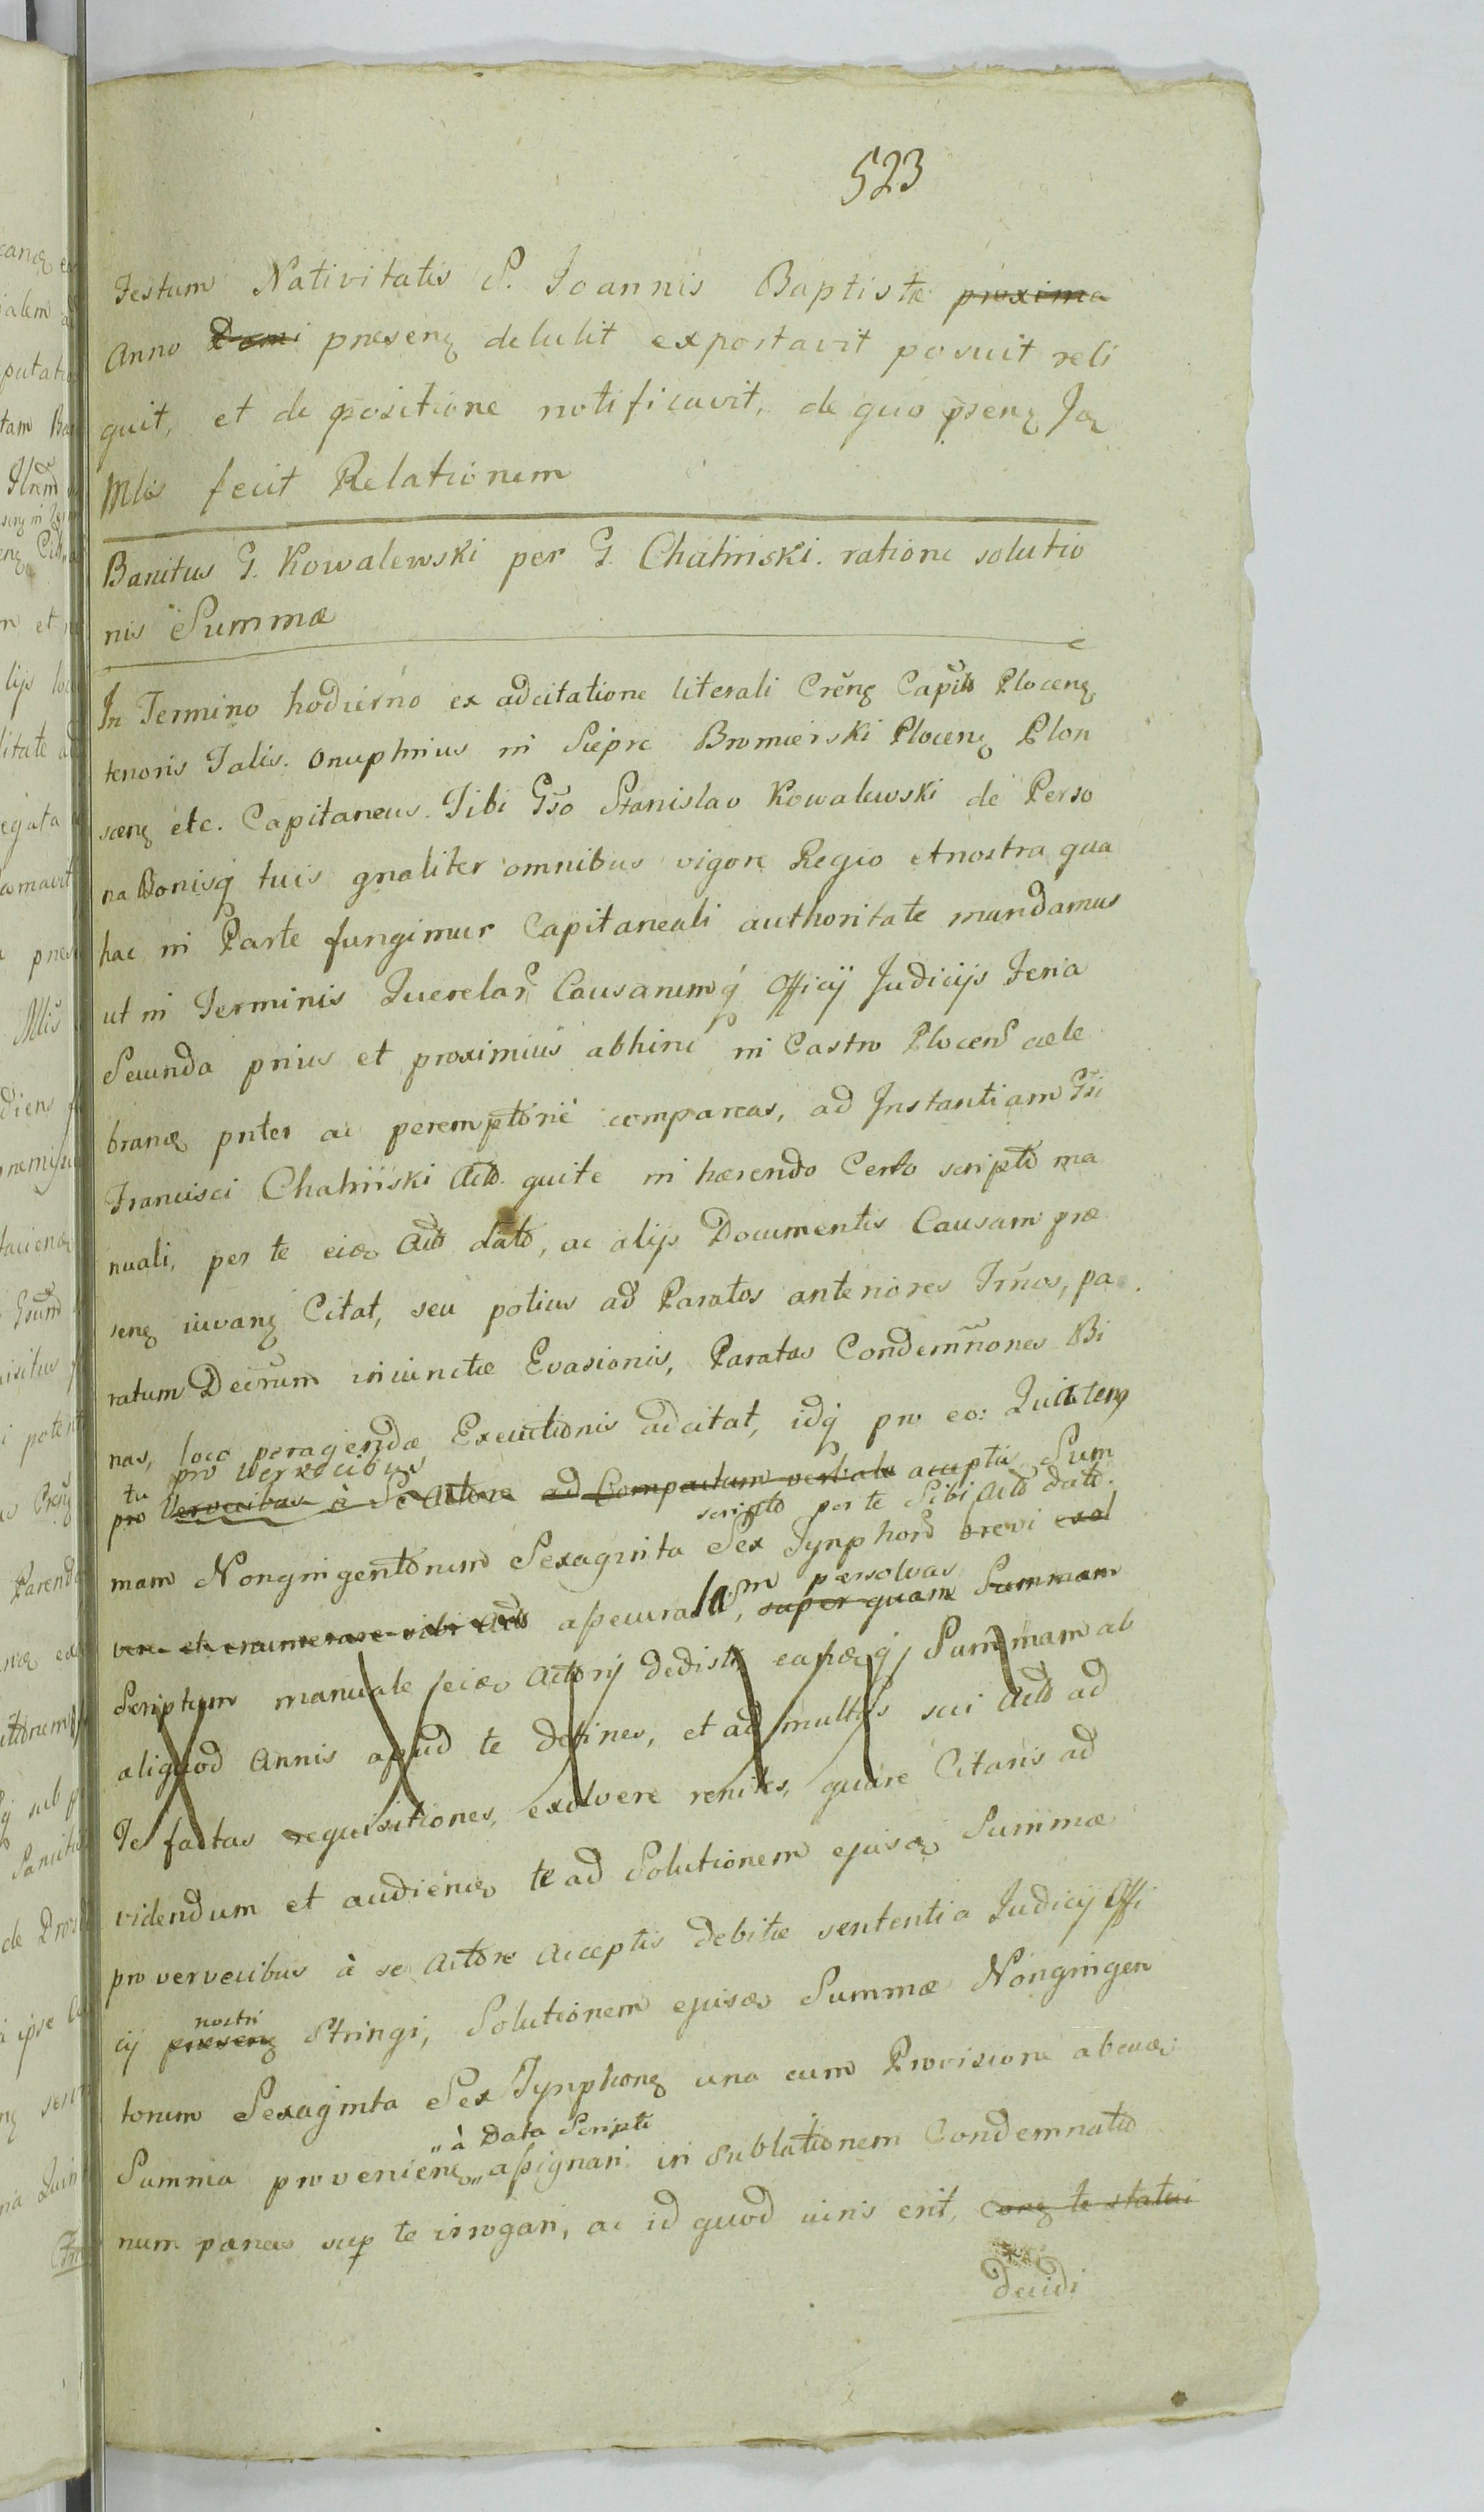 523
Festum Nativitatis S. Joannis Baptistæ proxima
Anno Domi presenz detulit exportavit posuit reli
quit, et de positione notificavit, de quo psenz Ja
Mlis fecit Relationem
Banitus G. Kowalewski per G. Chaliński. ratione solutio
nis Summæ
In Termino hodierno ex adcitatione literali Crenz Capitlo Plocenz
tenoris Talis. Onuphrius in Siepre Bromierski Plocenz Plon
scenz etc. Capitaneus. Tibi Gso Stanislao Kowalewski de Perso
na Bonisq tuis gnaliter omnibus vigore Regio et nostra qua
hac in Parte fungimur Capitaneali authoritate mandamus
ut in Terminis Querelar Causarumq Officij Judicijs Feria
Secunda prius et proximius abhinc in Castro Plocen cele
branz pnter ac peremptorie compareas, ad Instantiam Gsi
Francisci Chaliński Acto. qui te in hærendo Certo scripto ma
nuali, per te eid Acto dato, ac alijs Documentis Causam præ
senz iuvanz Citat, seu potius ad Paratos anteriores Trnos, pa
ratum Decrum iniunctæ Evasionis, Paratas Condemnones Bi
nas, loco peragendæ Executionis adcitat, idq pro eo: Quia tenq
tu pro Vervecibus
pro Vervecibus à Se Actore ad Compactum verbale acceptis Sum
scripto per te Sibi Acto dato
mam Nongingentorum Sexaginta Sex Tynphor brevi exol
m persolvas
vere et enumerare sibi Acto assecurasti, super quam Summam
Scriptum manuale eid Actorij dedisti eamq Summam ab
aliquod Annis apud te detines, et ad multas sui Acto ad
Te factas requisitiones, exolvere renites, quare Citaris ad
videndum et audiend te ad Solutionem ejusd Summæ
pro vervecibus à se Actore Acceptis debitæ sententia Judicij Offi
nostri
cij presenz Stringi, Solutionem ejusd Summæ Nongingen
torum Sexaginta Sex Tynphonz una cum Provisione ab ead
„ à Data Scripti
Summa provenienz „ assignari in sublationem Condemnatio
num pænas sup te irrogari, ac id quod iuris erit, conz te statui
decidi